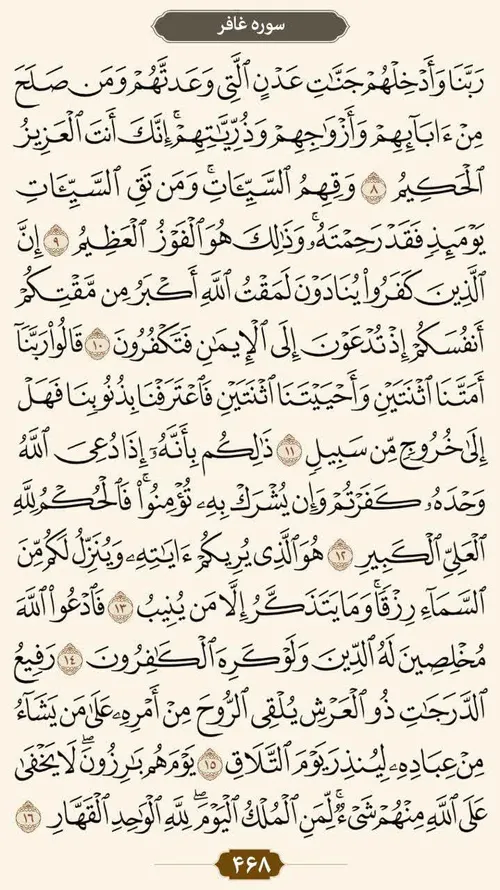 سوره غافر
رَبَّنَا وَأَدْخِلْهُمْ جَنَّٰتِ عَدْنٍ ٱلَّتِى وَعَدتَّهُمْ وَمَن صَلَحَ
مِنْ ءَابَآئِهِمْ وَأَزْوَٰجِهِمْ وَذُرِّيَّٰتِهِمْ ۚ إِنَّكَ أَنتَ ٱلْعَزِيزُ
ٱلْحَكِيمُ ٨ وَقِهِمُ ٱلسَّيِّـَٔاتِ ۚ وَمَن تَقِ ٱلسَّيِّـَٔاتِ
يَوْمَئِذٍ فَقَدْ رَحِمْتَهُۥ ۚ وَذَٰلِكَ هُوَ ٱلْفَوْزُ ٱلْعَظِيمُ ٩ إِنَّ
ٱلَّذِينَ كَفَرُوا۟ يُنَادَوْنَ لَمَقْتُ ٱللَّهِ أَكْبَرُ مِن مَّقْتِكُمْ
أَنفُسَكُمْ إِذْ تُدْعَوْنَ إِلَى ٱلْإِيمَٰنِ فَتَكْفُرُونَ ١٠ قَالُوا۟ رَبَّنَآ
أَمَتَّنَا ٱثْنَتَيْنِ وَأَحْيَيْتَنَا ٱثْنَتَيْنِ فَٱعْتَرَفْنَا بِذُنُوبِنَا فَهَلْ
إِلَىٰ خُرُوجٍ مِّن سَبِيلٍ ١١ ذَٰلِكُم بِأَنَّهُۥٓ إِذَا دُعِىَ ٱللَّهُ
وَحْدَهُۥ كَفَرْتُمْ وَإِن يُشْرَكْ بِهِۦ تُؤْمِنُوا۟ ۚ فَٱلْحُكْمُ لِلَّهِ
ٱلْعَلِىِّ ٱلْكَبِيرِ ١٢ هُوَ ٱلَّذِى يُرِيكُمْ ءَايَٰتِهِۦ وَيُنَزِّلُ لَكُم مِّنَ
ٱلسَّمَآءِ رِزْقًا ۚ وَمَا يَتَذَكَّرُ إِلَّا مَن يُنِيبُ ١٣ فَٱدْعُوا۟ ٱللَّهَ
مُخْلِصِينَ لَهُ ٱلدِّينَ وَلَوْ كَرِهَ ٱلْكَٰفِرُونَ ١٤ رَفِيعُ
ٱلدَّرَجَٰتِ ذُو ٱلْعَرْشِ يُلْقِى ٱلرُّوحَ مِنْ أَمْرِهِۦ عَلَىٰ مَن يَشَآءُ
مِنْ عِبَادِهِۦ لِيُنذِرَ يَوْمَ ٱلتَّلَاقِ ١٥ يَوْمَ هُم بَٰرِزُونَ ۖ لَا يَخْفَىٰ
عَلَى ٱللَّهِ مِنْهُمْ شَىْءٌ ۚ لِّمَنِ ٱلْمُلْكُ ٱلْيَوْمَ ۖ لِلَّهِ ٱلْوَٰحِدِ ٱلْقَهَّارِ ١٦
۴۶۸